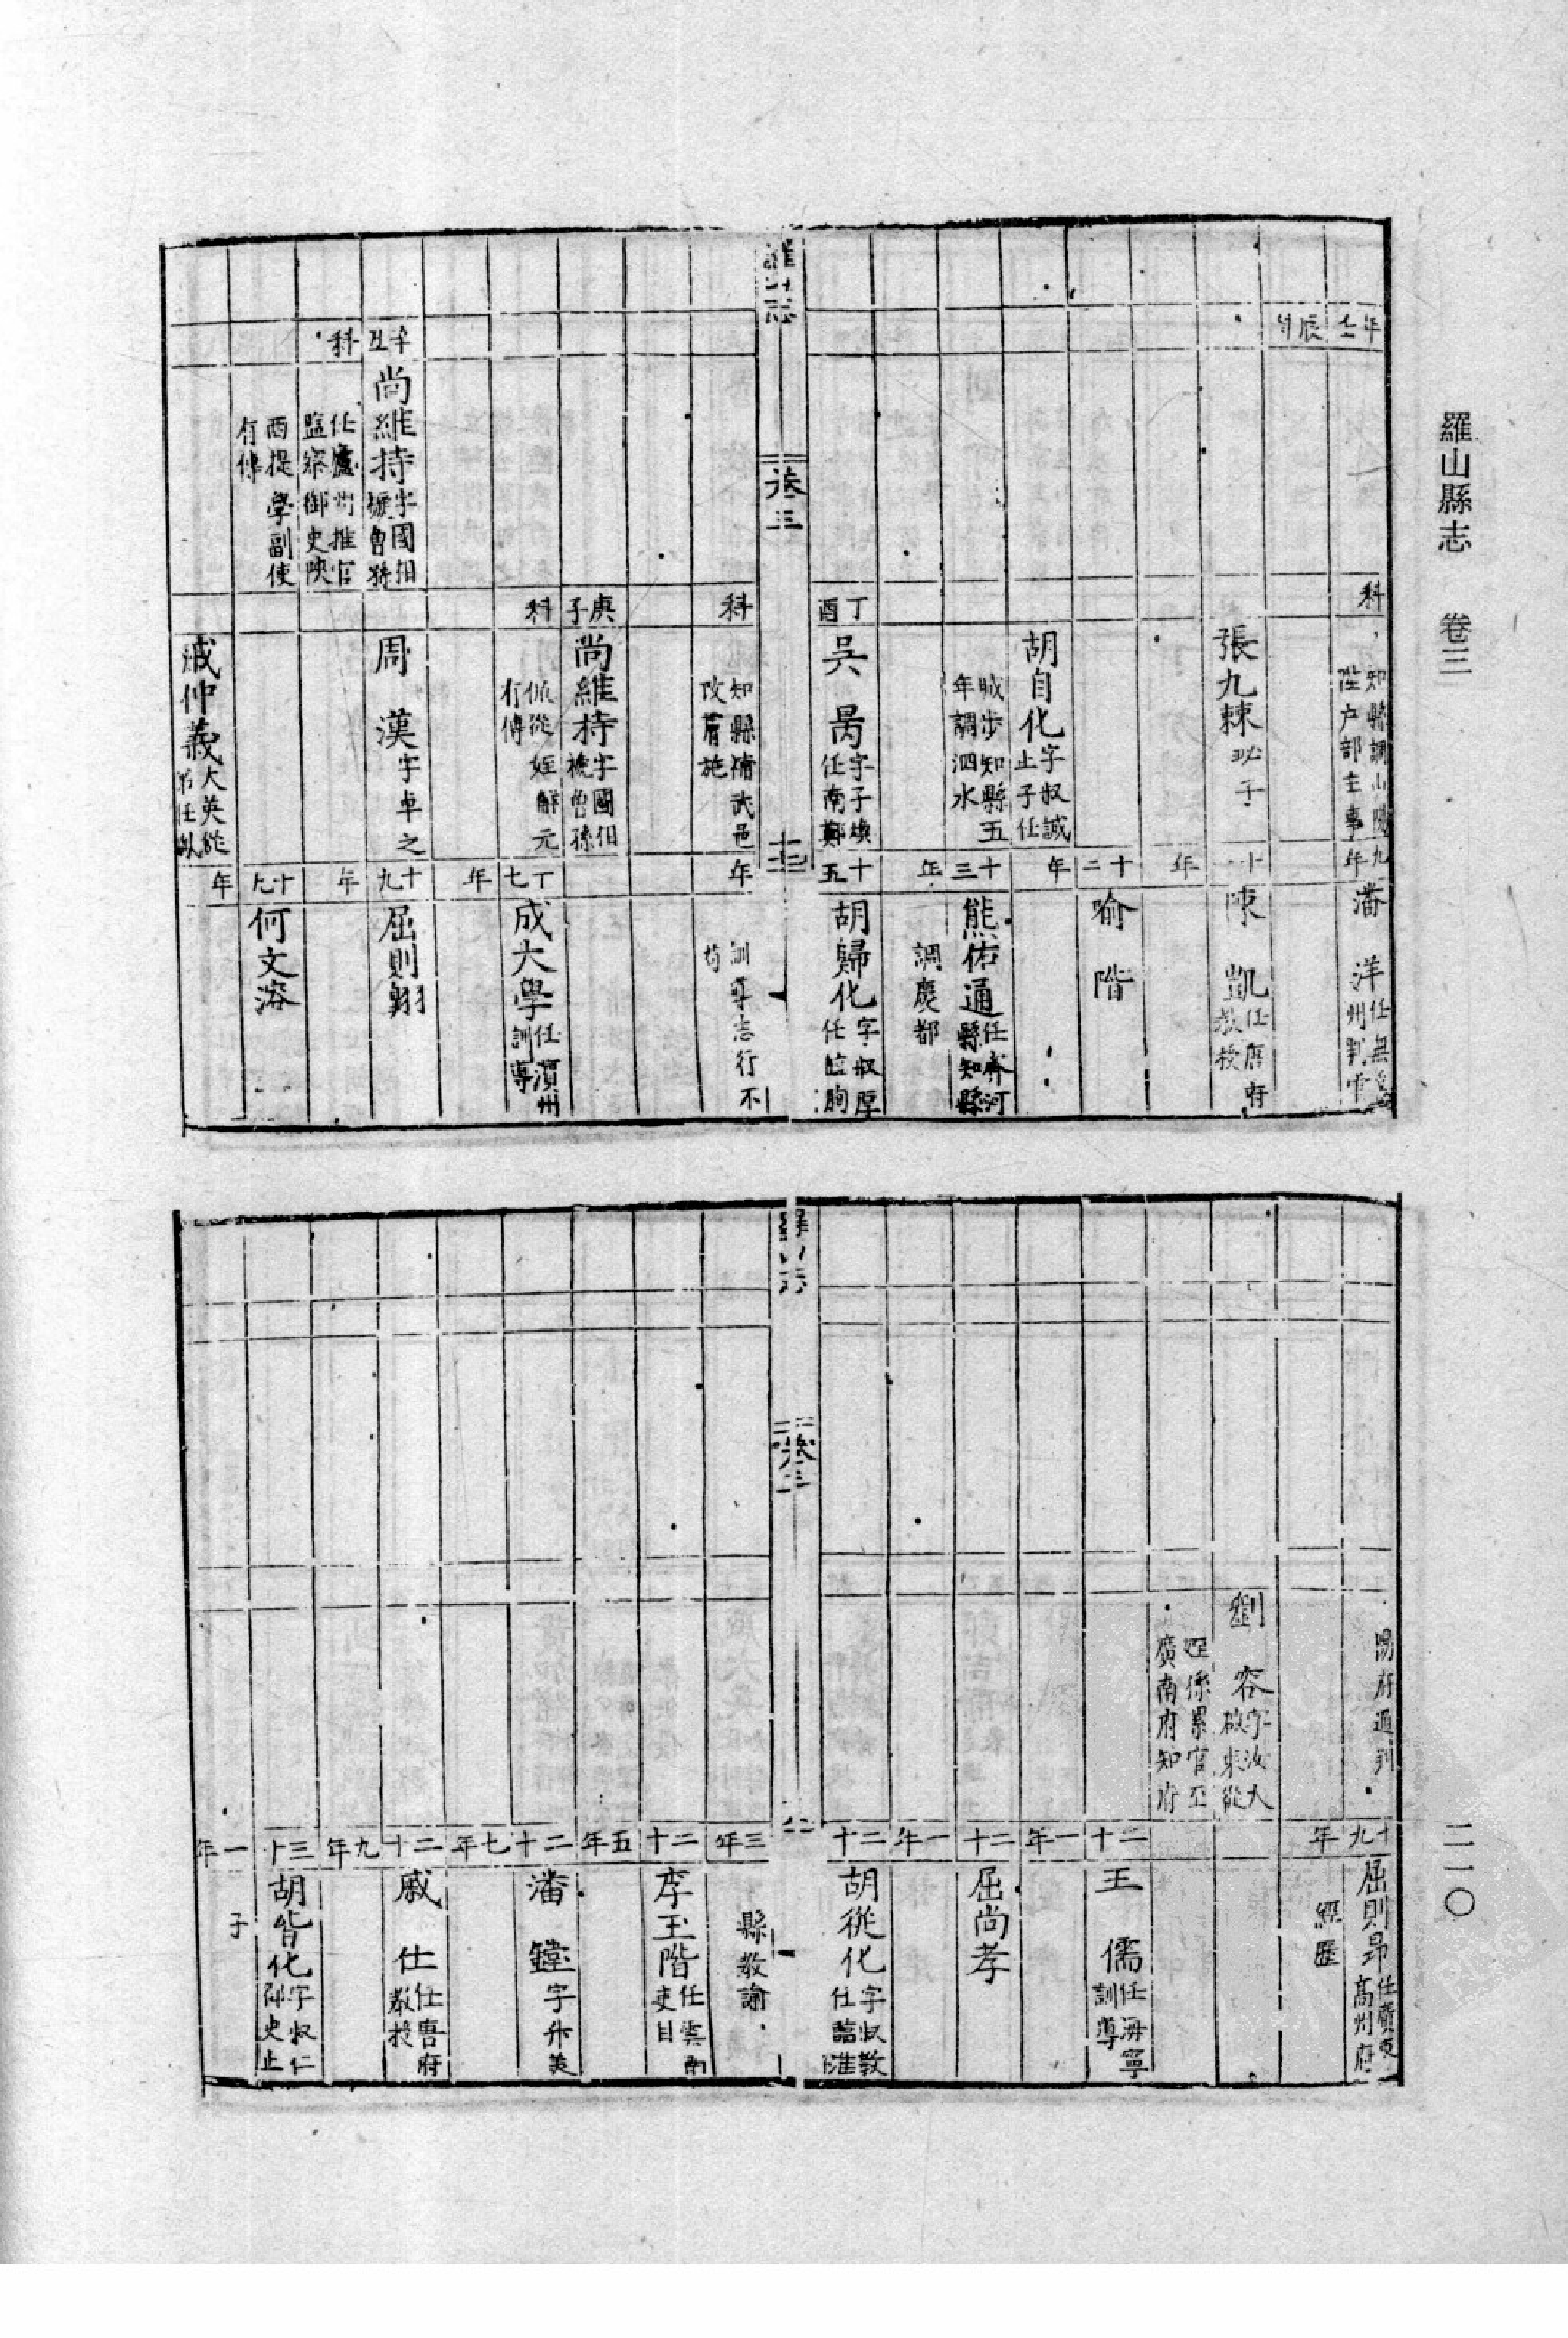 羅山縣志
卷三
二一〇
年
壬辰
科
知縣調山陽
陞戶部主事
九年
潘洋
任無為
州判官
張九棘
珌子
十一年
陳凱
任唐府
教授
胡自化
字叔誠
止子任
十二年
喻階
城步知縣五
年調泗水
十三年
熊佑通
任齊河
縣知縣
調慶都
丁酉
吳昺
字子煥
任南鄭
十五
胡歸化
字叔厚
任臨朐
羅山志
卷三
科
知縣補武邑
改膚施
年
訓導志行不
苟
庚子
科
尚維持
字國相
褫曾孫
佩從姪解元
有傳
十七年
成大學
任濱州
訓導
辛丑
科
尚維持
字國相
褫曾孫
任廬州推官
監察御史陝
西提學副使
有傳
周漢
字卓之
十九年
屈則翱
十九年
何文溶
戚仲義
大英從
弟任
年
易府通判
十九年
屈則昂
任廣東
高州府
經歷
劉容
字汝大
啟東從
姪孫累官至
廣南府知府
二十一年
王儒
任海寧
訓導
二十一年
屈尚孝
二十
胡從化
字叔教
任臨淮
羅山志
卷三
三年
縣教諭
二十五年
李玉階
任雲南
吏目
二十七年
潘鑓
字升美
二十九年
戚仕
任唐府
教授
三十一年
胡皆化
字叔仁
御史止
子